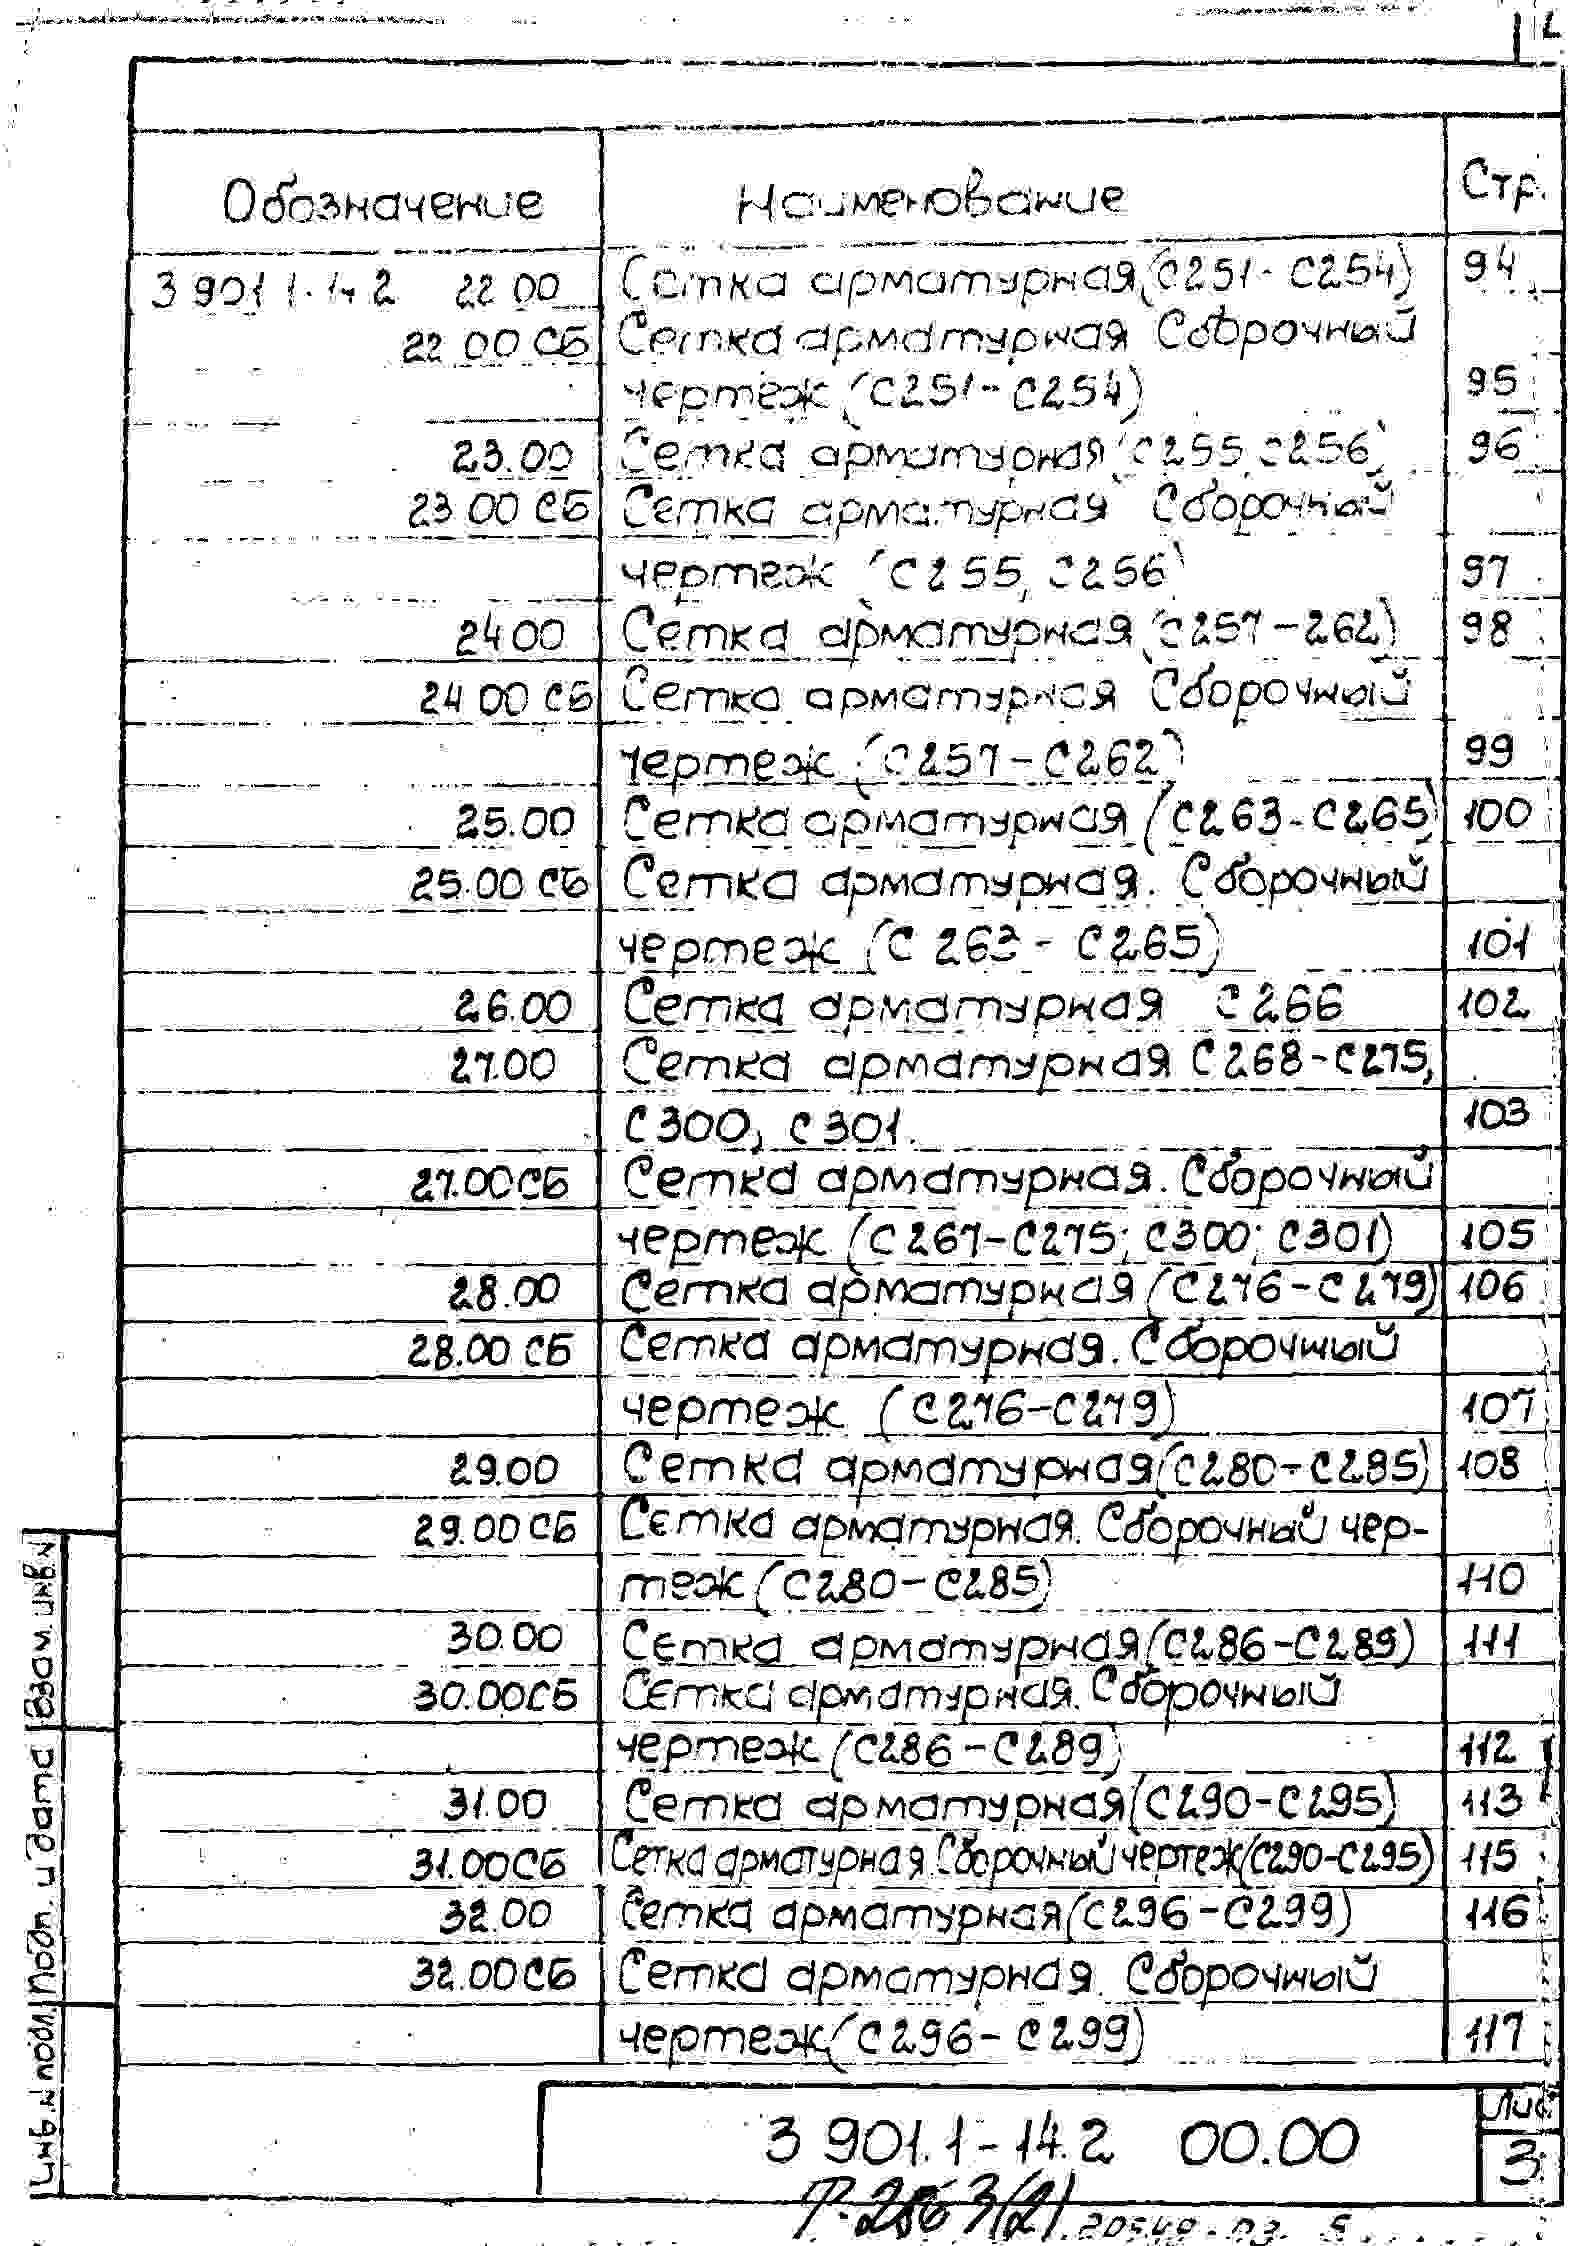 Обозначение Наименование Стр.
3 901 1-14 2 22 00 Сетка арматурная (С251-С254) 94
22 00 СБ Сетка арматурная Сборочный
чертеж (С251-С254) 95
23.00 Сетка арматурная (С255, С256) 96
23 00 СБ Сетка арматурная Сборочный
чертеж (С255, С256) 97
24 00 Сетка арматурная (С257-262) 98
24 00 СБ Сетка арматурная Сборочный
чертеж (С257-С262) 99
25.00 Сетка арматурная (С263-С265) 100
25.00 СБ Сетка арматурная. Сборочный
чертеж (С 263 - С265) 101
26.00 Сетка арматурная С 266 102
27.00 Сетка арматурная С268-С275,
С300, С301. 103
27.00СБ Сетка арматурная. Сборочный
чертеж (С267-С275; С300; С301) 105
28.00 Сетка арматурная (С276-С279) 106
28.00 СБ Сетка арматурная. Сборочный
чертеж (С276-С279) 107
29.00 Сетка арматурная (С280-С285) 108
29.00 СБ Сетка арматурная. Сборочный чер-
теж (С280-С285) 110
30.00 Сетка арматурная (С286-С289) 111
30.00СБ Сетка арматурная. Сборочный
чертеж (С286-С289) 112
31.00 Сетка арматурная (С290-С295) 113
31.00СБ Сетка арматурная. Сборочный чертеж (С290-С295) 115
32.00 Сетка арматурная (С296-С299) 116
32.00СБ Сетка арматурная. Сборочный
чертеж (С296-С299) 117
Взам. инв.N
Подп. и дата
Инв.N подл.
3 901.1-14.2 00.00
Лис
3
Т-2563(2) 20549-03 5